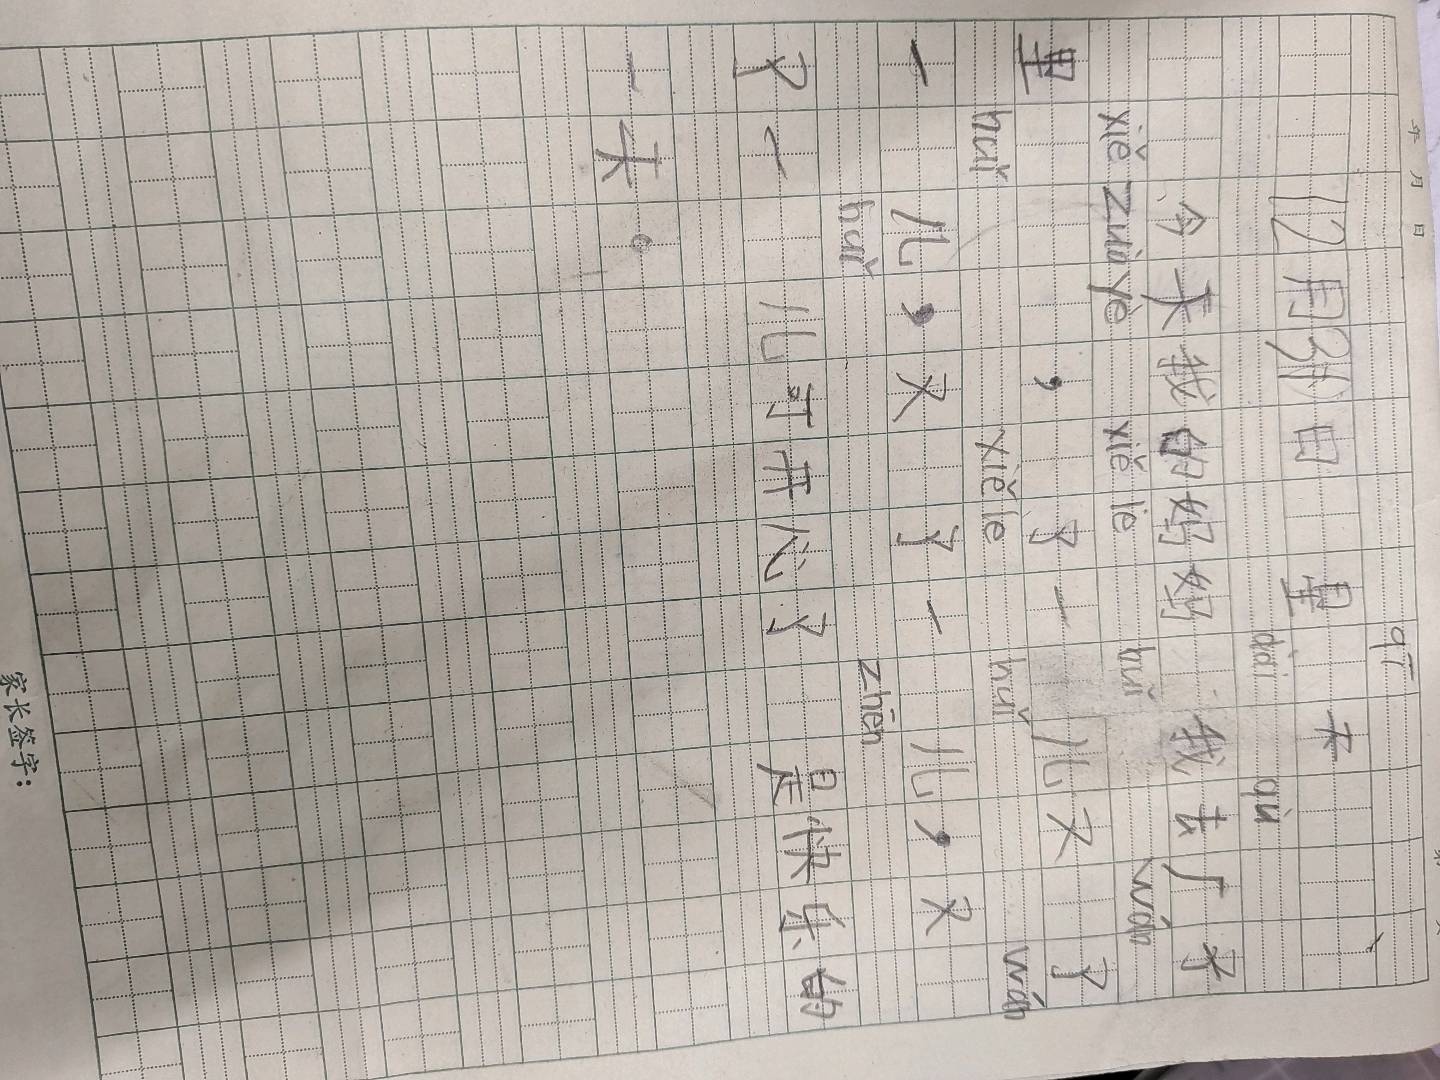 年 月 日
qī
12月31日 星 不
dài qù
今天我的好好 我去厂子
xiě zuò yè xiě le huǐ wán
里 ，了一 儿又 了
huǐ xiě le huǐ wán
一 儿，又 了一 儿，又
huǐ zhēn
了一 儿可开心了 是快乐的
一天。
家长签字：